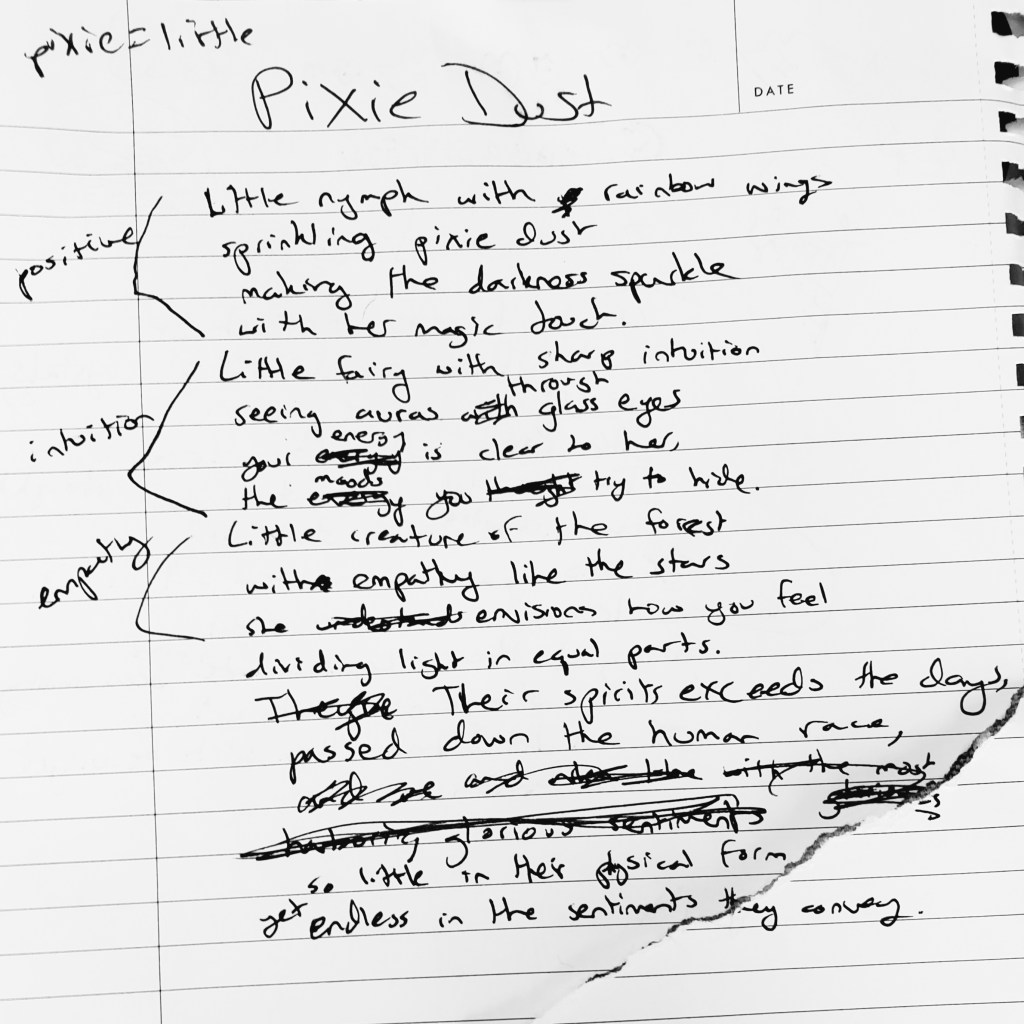 pixie = little
Pixie Dust
DATE
Little nymph with rainbow wings
sprinkling pixie dust
making the darkness sparkle
with her magic touch.
positive
Little fairy with sharp intuition
through
seeing auras glass eyes
energy
your is clear to her,
moods
the you try to hide.
intuition
Little creature of the forest
with empathy like the stars
she envisions how you feel
dividing light in equal parts.
empathy
Their spirits exceeds the days,
passed down the human race,
and with the most
harboring glorious sentiments
so little in their physical form
yet endless in the sentiments they convey.